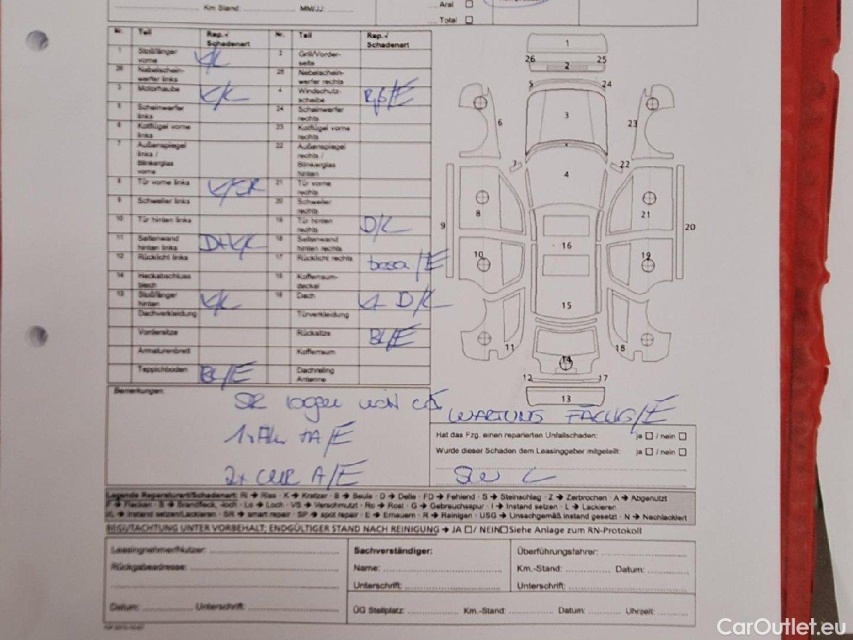 Km Stand: MM/JJ: Aral
Total
Nr. Teil Rep.√ Schadenart Nr. Teil Rep.√ Schadenart
1 Stoßfänger vorne K/K 2 Grill/Vorderseite
26 Nebelscheinwerfer links 25 Nebelscheinwerfer rechts
3 Motorhaube K/K 4 Windschutzscheibe /E
5 Scheinwerfer links 24 Scheinwerfer rechts
6 Kotflügel vorne links 23 Kotflügel vorne rechts
7 Außenspiegel links / Blinkerglas vorne 22 Außenspiegel rechts / Blinkerglas hinten
8 Tür vorne links K/SR 21 Tür vorne rechts
9 Schweller links 20 Schweller rechts
10 Tür hinten links 19 Tür hinten rechts D/K
11 Seitenwand hinten links D+K/K 18 Seitenwand hinten rechts
12 Rücklicht links 17 Rücklicht rechts /E
14 Heckabschlussblech 15 Kofferraumdeckel
13 Stoßfänger hinten K/K 16 Dach D/K
Dachverkleidung Türverkleidung
Vordersitze Rücksitze BL/E
Armaturenbrett Kofferraum
Teppichboden BL/E Dachreling Antenne
1
26 2 25
5 24
3
6 23
7 22
4
8 21
9 20
16
10 19
15
11 18
14
12 17
13
Bemerkungen:
WARTUNG FÄLLIG/E
Hat das Fzg. einen reparierten Unfallschaden: ja / nein
Wurde dieser Schaden dem Leasinggeber mitgeteilt: ja / nein
Legende Reparaturart/Schadenart: RI → Riss K → Kratzer B → Beule D → Delle FD → Fehlend S → Steinschlag Z → Zerbrochen A → Abgenutzt
F → Flecken B → Brandfleck, -loch Lo → Loch VS → Verschmutzt Ro → Rost G → Gebrauchsspur I → Instand setzen L → Lackieren
IL → Instand setzen/Lackieren SR → smart repair SP → spot repair E → Erneuern R → Reinigen USG → Unsachgemäß instand gesetzt N → Nachlackiert
BEGUTACHTUNG UNTER VORBEHALT; ENDGÜLTIGER STAND NACH REINIGUNG → JA / NEIN Siehe Anlage zum RN-Protokoll
Leasingnehmer/Nutzer: Sachverständiger: Überführungsfahrer:
Rückgabeadresse: Name: Km.-Stand: Datum:
Unterschrift: Unterschrift:
Datum: Unterschrift: ÜG Stellplatz: Km.-Stand: Datum: Uhrzeit:
CarOutlet.eu